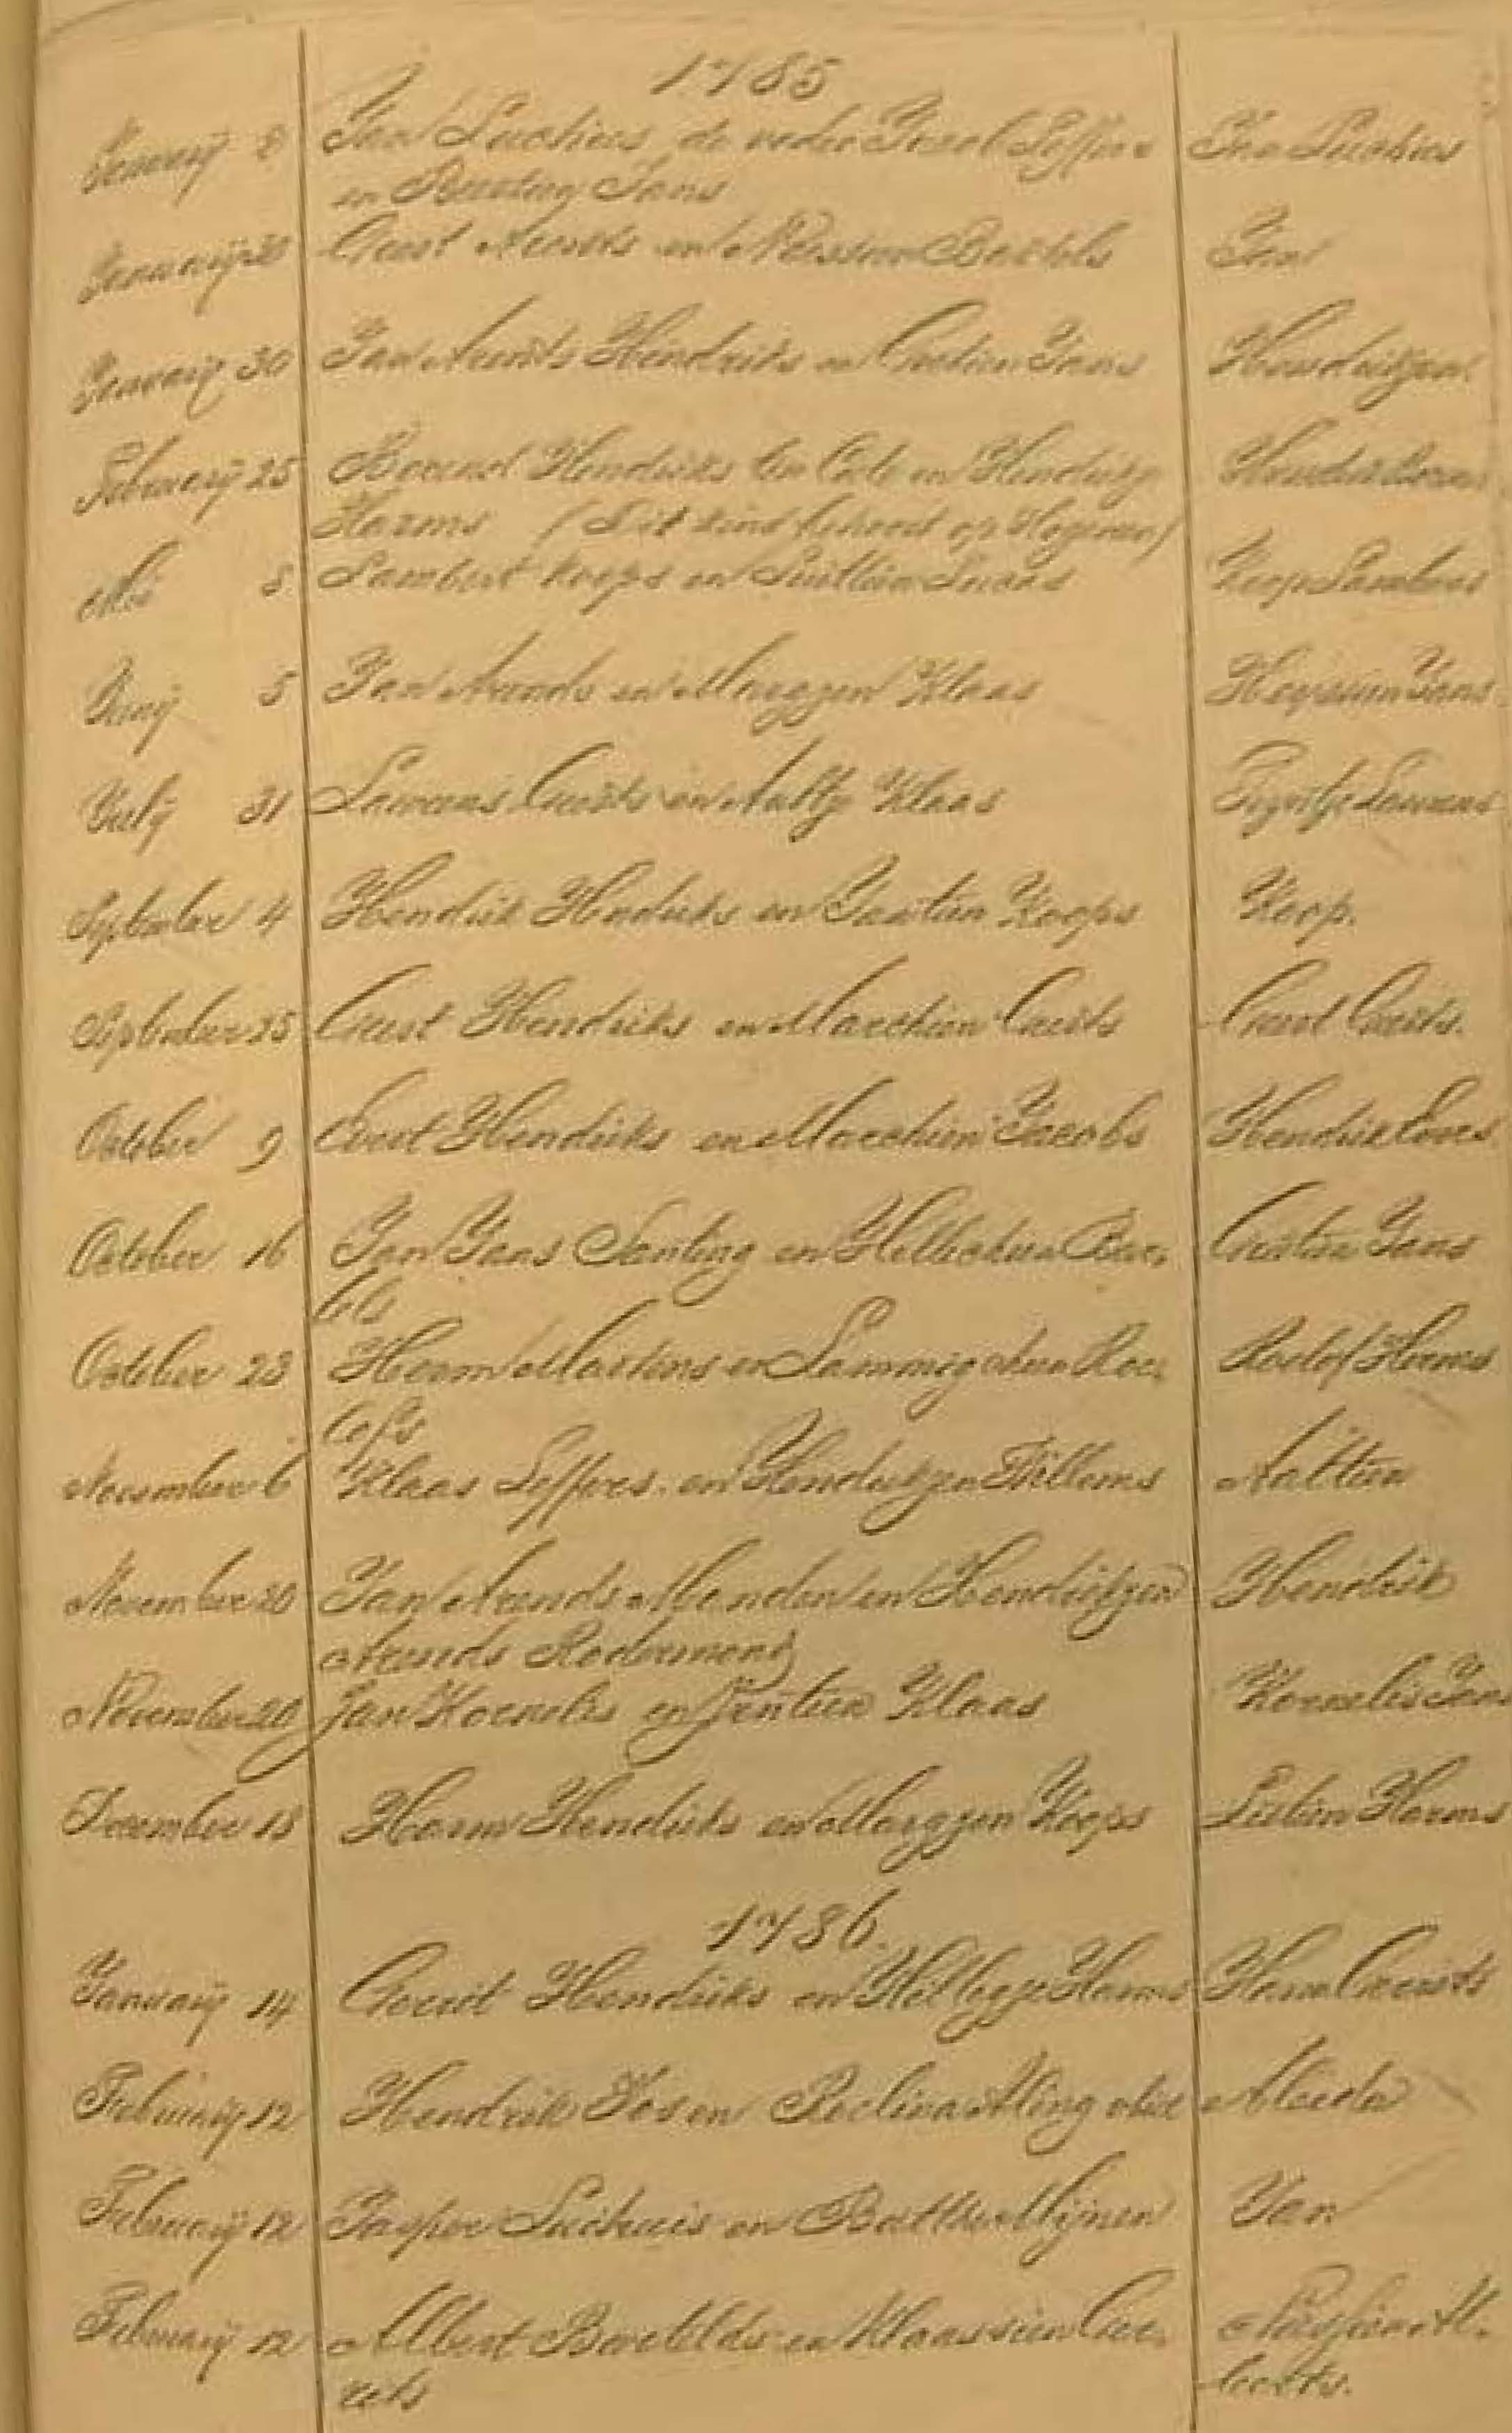 1785
Januarij 8 Jan Luchies de vader Roelof Jan Luchies
en Jans
Januarij Geert Arents en Bartels Jan
Januarij 30 Jan Arents Hendriks en Geertien Jans Hendrikjen
Februarij 25 Berend Hendriks ten Cate en Hendrikje
Harms (Dit kind behoord op Hogeveen)
Mei 8 Lambert Koops en Koop Lamberts
Junij 5 Jan Arends en Margjen Klaas Jans
Julij 31 Lawrens Geerts en Aaltje Klaas Lawrens
September 4 Hendrik Hendriks en Jantien Koops Koop.
September 25 Geert Hendriks en Marchien Geerts Geert Geerts.
October 9 Evert Hendriks en Marchien Jacobs Hendrik Evers
October 16 Jan Jans Santing en Hillechien Bar, Geertien Jans
tels
October 23 Harm Martens en Lammigchien Roe, Roelof Harms
lofs
November 6 Klaas Seffers en Hendrikjen Willems Aaltien
November 20 Jan Arends Menden en Hendrikjen Hendrik
Arends Rodermond
November 20 Jan Kornelis en Jentien Klaas Kornelis Jans
December 18 Harm Hendriks en Margjen Koops Harms
1786.
Januarij 14 Geerit Hendriks en Hilligje Harms Harm Geerits
Februarij 12 Hendrik Vos en Roelina Alingobel Aleida
Februarij 12 Jasper Luchies en Battha Mijnen Jan
Februarij 12 Albert Barelds en Klaassien Gee, Al,
rets berts.